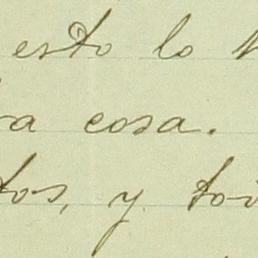 esto lo
ra cosa.
tos, y to